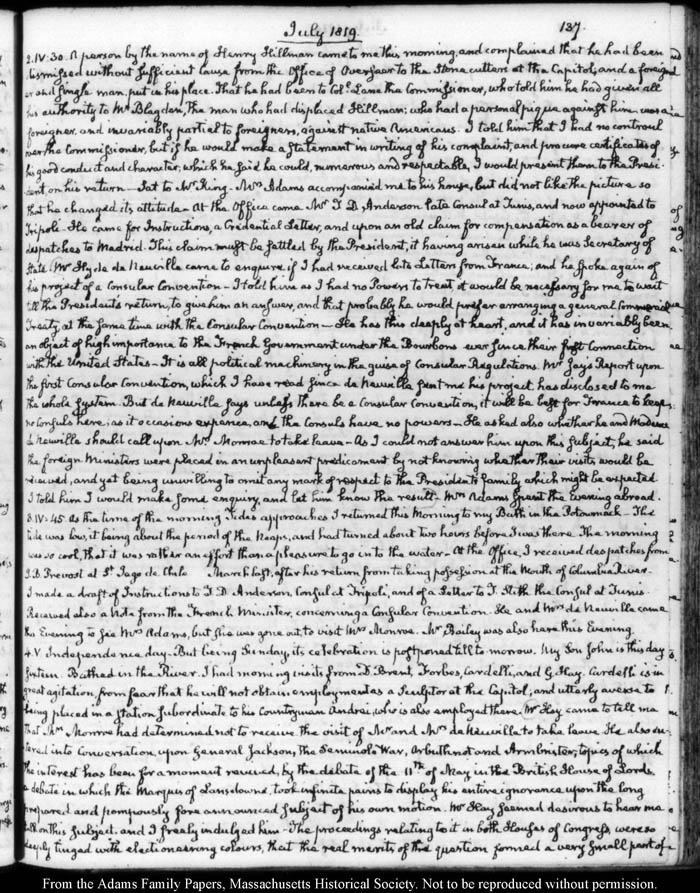 July 1819. 137.
2. IV:30. A person by the name of Henry Hillman came to me this morning, and complained that he had been
dismissed without sufficient cause from the Office of Overseer to the Stone cutters at the Capitol, and a foreign-
er and single man, put in his place. That he had been to Coll. Lane the Commissioner, who told him he had given all
his authority to Mr Blagden, the man who had displaced Hillman; who had a personal pique against him, was a
foreigner, and invariably partial to foreigners, against native Americans. I told him that I had no controul
over the Commissioner, but if he would make a statement in writing of his complaint, and procure certificates of
his good conduct and character, which he said he could, numerous and respectable, I would present them to the Presi-
dent on his return— Sat to Mr King. Mrs Adams accompanied me to his house, but did not like the picture so
that he changed its attitude— At the Office came Mr T. D. Anderson late Consul at Tunis, and now appointed to
Tripoli— He came for Instructions, a Credential Letter, and upon an old claim for compensation as a bearer of
despatches to Madrid. This claim must be settled by the President, it having arisen while he was Secretary of
State. Mr Hyde de Neuville came to enquire if I had received late Letters from France; and he spoke again of
his project of a Consular Convention— I told him as I had no Powers to treat, it would be necessary for me to wait
till the President's return, to give him an answer, and that probably he would prefer arranging a general Commercial
Treaty, at the same time with the Consular Convention— He has this deeply at heart, and it has invariably been
an object of high importance to the French Government under the Bourbons ever since their first connection
with the United States— It is all political machinery in the guise of Consular Regulations. Mr Jay's Report upon
the first Consular Convention, which I have read since de Neuville sent me his project, has disclosed to me
the whole system. But de Neuville says unless there be a Consular Convention, it will be best for France to keep
no Consuls here; as it occasions expence, and the Consuls have no powers— He asked also whether he and Madame
de Neuville should call upon Mrs Monroe to take leave— As I could not answer him upon this subject, he said
the foreign Ministers were placed in an unpleasant predicament by not knowing whether their visits would be
received, and yet being unwilling to omit any mark of respect to the President's family which might be expected
I told him I would make some enquiry, and let him know the result. Mrs Adams spent the Evening abroad.
3. IV:45. As the time of the morning Tides approaches I returned this Morning to my Bath in the Potowmack— The
tide was low, it being about the period of the Neaps, and had turned about two hours before I was there. The morning
was so cool, that it was rather an effort than a pleasure to go into the water— At the Office, I received despatches from
J. B. Prevost at St Iago de Chile March last, after his return from taking possession at the Mouth of Columbia River.
I made a draft of Instructions to T. D. Anderson, Consul at Tripoli, and of a Letter to T. Stith the Consul at Tunis.
Received also a Note from the French Minister, concerning a Consular Convention. He and Mrs de Neuville came
this Evening to see Mrs Adams, but she was gone out, to visit Mrs Monroe. Mr Bailey was also here this Evening
4. V. Independence day. But being Sunday, its celebration is postponed till to-morrow. My Son John is this day
sixteen. Bathed in the River. I had morning visits from D. Brent, Forbes, Cardelli, and G. Hay. Cardelli is in
great agitation, from fear that he will not obtain employment as a Sculptor at the Capitol, and utterly averse to
being placed in a station subordinate to his Countryman Andrei, who is also employed there. Mr Hay came to tell me
that Mrs Monroe had determined not to receive the visit of Mr and Mrs de Neuville to take leave. He also en-
tered into Conversation, upon General Jackson, the Seminole War, Arbuthnot and Armbrister, topics of which
the interest has been for a moment revived, by the debate of the 11th of May in the British House of Lords.
a debate in which the Marquis of Lansdowne, took infinite pains to display his entire ignorance upon the long
prepared and pompously fore announced subject of his own motion. Mr Hay seemed desirous to hear me
talk on this subject. and I freely indulged him— The proceedings relating to it in both Houses of Congress, were so
deeply tinged with electioneering colours, that the real merits of the question formed a very small part of
From the Adams Family Papers, Massachusetts Historical Society. Not to be reproduced without permission.